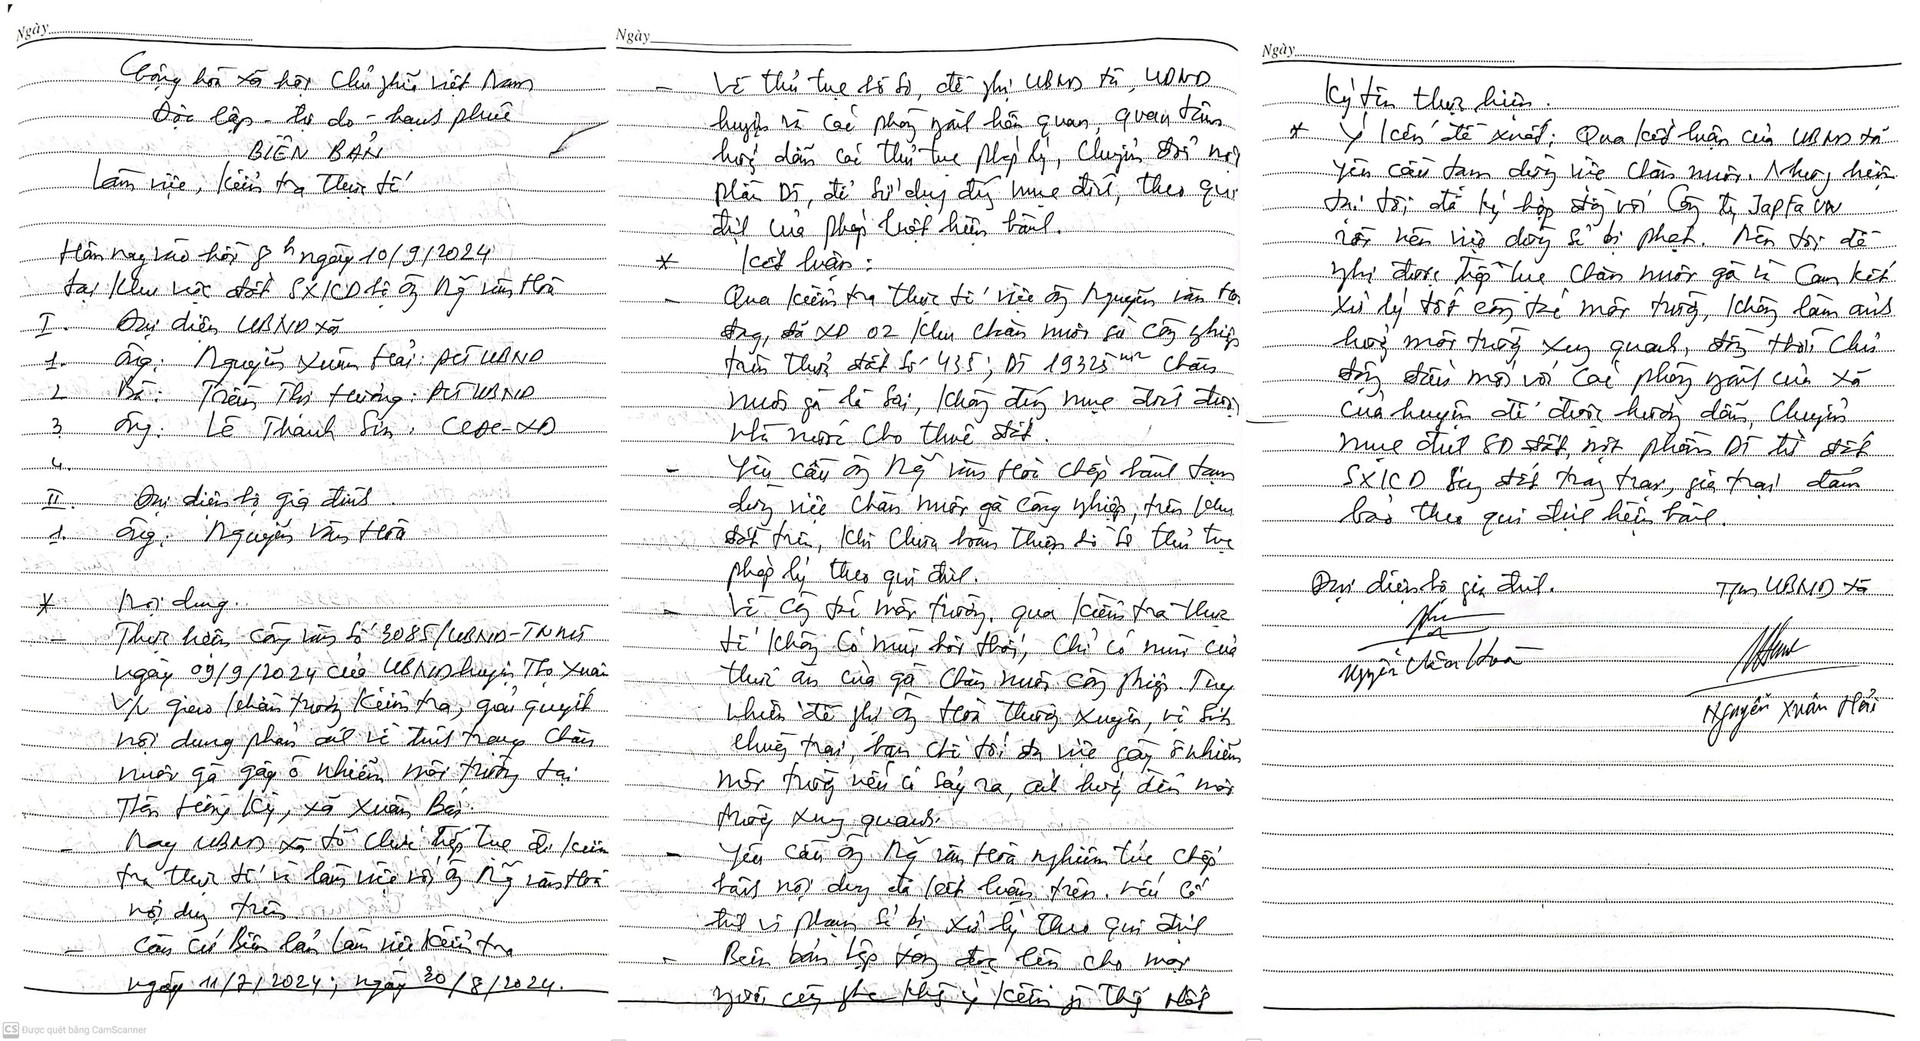 Ngày
Cộng hòa xã hội Chủ nghĩa việt Nam
Độc lập - tự do - hạnh phúc
BIÊN BẢN
Làm việc, kiểm tra thực tế
Hôm nay vào hồi 8h ngày 10/9/2024
tại khu vực đất SXKD hộ ông Ng văn Hoà
I. Đại diện UBND xã
1. Ông: Nguyễn Xuân Hải: PCT UBND
2 Bà: Trần Thị Hương: PCT UBND
3 Ông: Lê Thành Sơn: CBĐC-XD
4.
II. Đại diện hộ gia đình.
1. Ông: Nguyễn Văn Hoà
* Nội dung.
- Thực hiện công văn số 3085/UBND-TNMT
ngày 09/9/2024 của UBND huyện Thọ Xuân
V/v giao khẩn trương kiểm tra, giải quyết
nội dung phản ánh về tình trạng chăn
nuôi gà gây ô nhiễm môi trường tại
Thôn Hồng Kỳ, xã Xuân
- Nay UBND xã tổ chức tiếp tục đi kiểm
tra thực tế và làm việc với ông Ng văn Hoà
nội dung trên
- Căn cứ Biên bản làm việc kiểm tra
ngày 11/7/2024; ngày 20/8/2024.
Được quét bằng CamScanner
Ngày
- Về thủ tục hồ sơ, đề nghị UBND xã, UBND
huyện và các phòng ngành liên quan, quan tâm
hướng dẫn các thủ tục pháp lý, chuyển đổi một
phần DT, để sử dụng đúng mục đích, theo qui
định của pháp luật hiện hành.
* Kết luận:
- Qua kiểm tra thực tế việc ông Nguyễn văn
đã XD 02 khu chăn nuôi gà công nghiệp
trên thửa đất số 435; DT 19325 m2 chăn
nuôi gà là sai, không đúng mục đích được
nhà nước cho thuê đất.
- Yêu cầu ông Ng văn Hoà chấp hành tạm
dừng việc chăn nuôi gà công nghiệp, trên khu
đất trên, khi chưa hoàn thiện hồ sơ thủ tục
pháp lý theo qui định.
- Về công tác môi trường, qua kiểm tra thực
tế không có mùi hôi thối, chỉ có mùi của
thức ăn của gà chăn nuôi công nghiệp. Tuy
nhiên đề nghị ông Hoà thường xuyên, vệ sinh
chuồng trại, hạn chế tối đa việc gây ô nhiễm
môi trường nếu có sảy ra, ảnh hưởng đến môi
trường xung quanh.
- Yêu cầu ông Ng văn Hoà nghiêm túc chấp
hành nội dung đã kết luận trên. nếu cố
tình vi phạm sẽ bị xử lý theo qui định
- Biên bản lập xong đọc lên cho mọi
người cùng nghe không ý kiến gì thống nhất
Ngày
ký tên thực hiện.
* Ý kiến đề xuất: Qua kết luận của UBND xã
yêu cầu tạm dừng việc chăn nuôi. Nhưng hiện
tại tôi đã ký hợp đồng với Công ty Japfa VN
rồi nên việc dừng sẽ bị phạt. Nên tôi đề
nghị được tiếp tục chăn nuôi gà và cam kết
xử lý tốt công tác môi trường, không làm ảnh
hưởng môi trường xung quanh, đồng thời chủ
động mới với các phòng ngành của xã
của huyện để được hướng dẫn, chuyển
mục đích SD đất, một phần DT từ đất
SXKD sang đất trang trại, gia trại đảm
bảo theo qui định hiện hành.
Đại diện hộ gia đình.
TM UBND xã
Nguyễn Văn Hoà
Nguyễn Xuân Hải